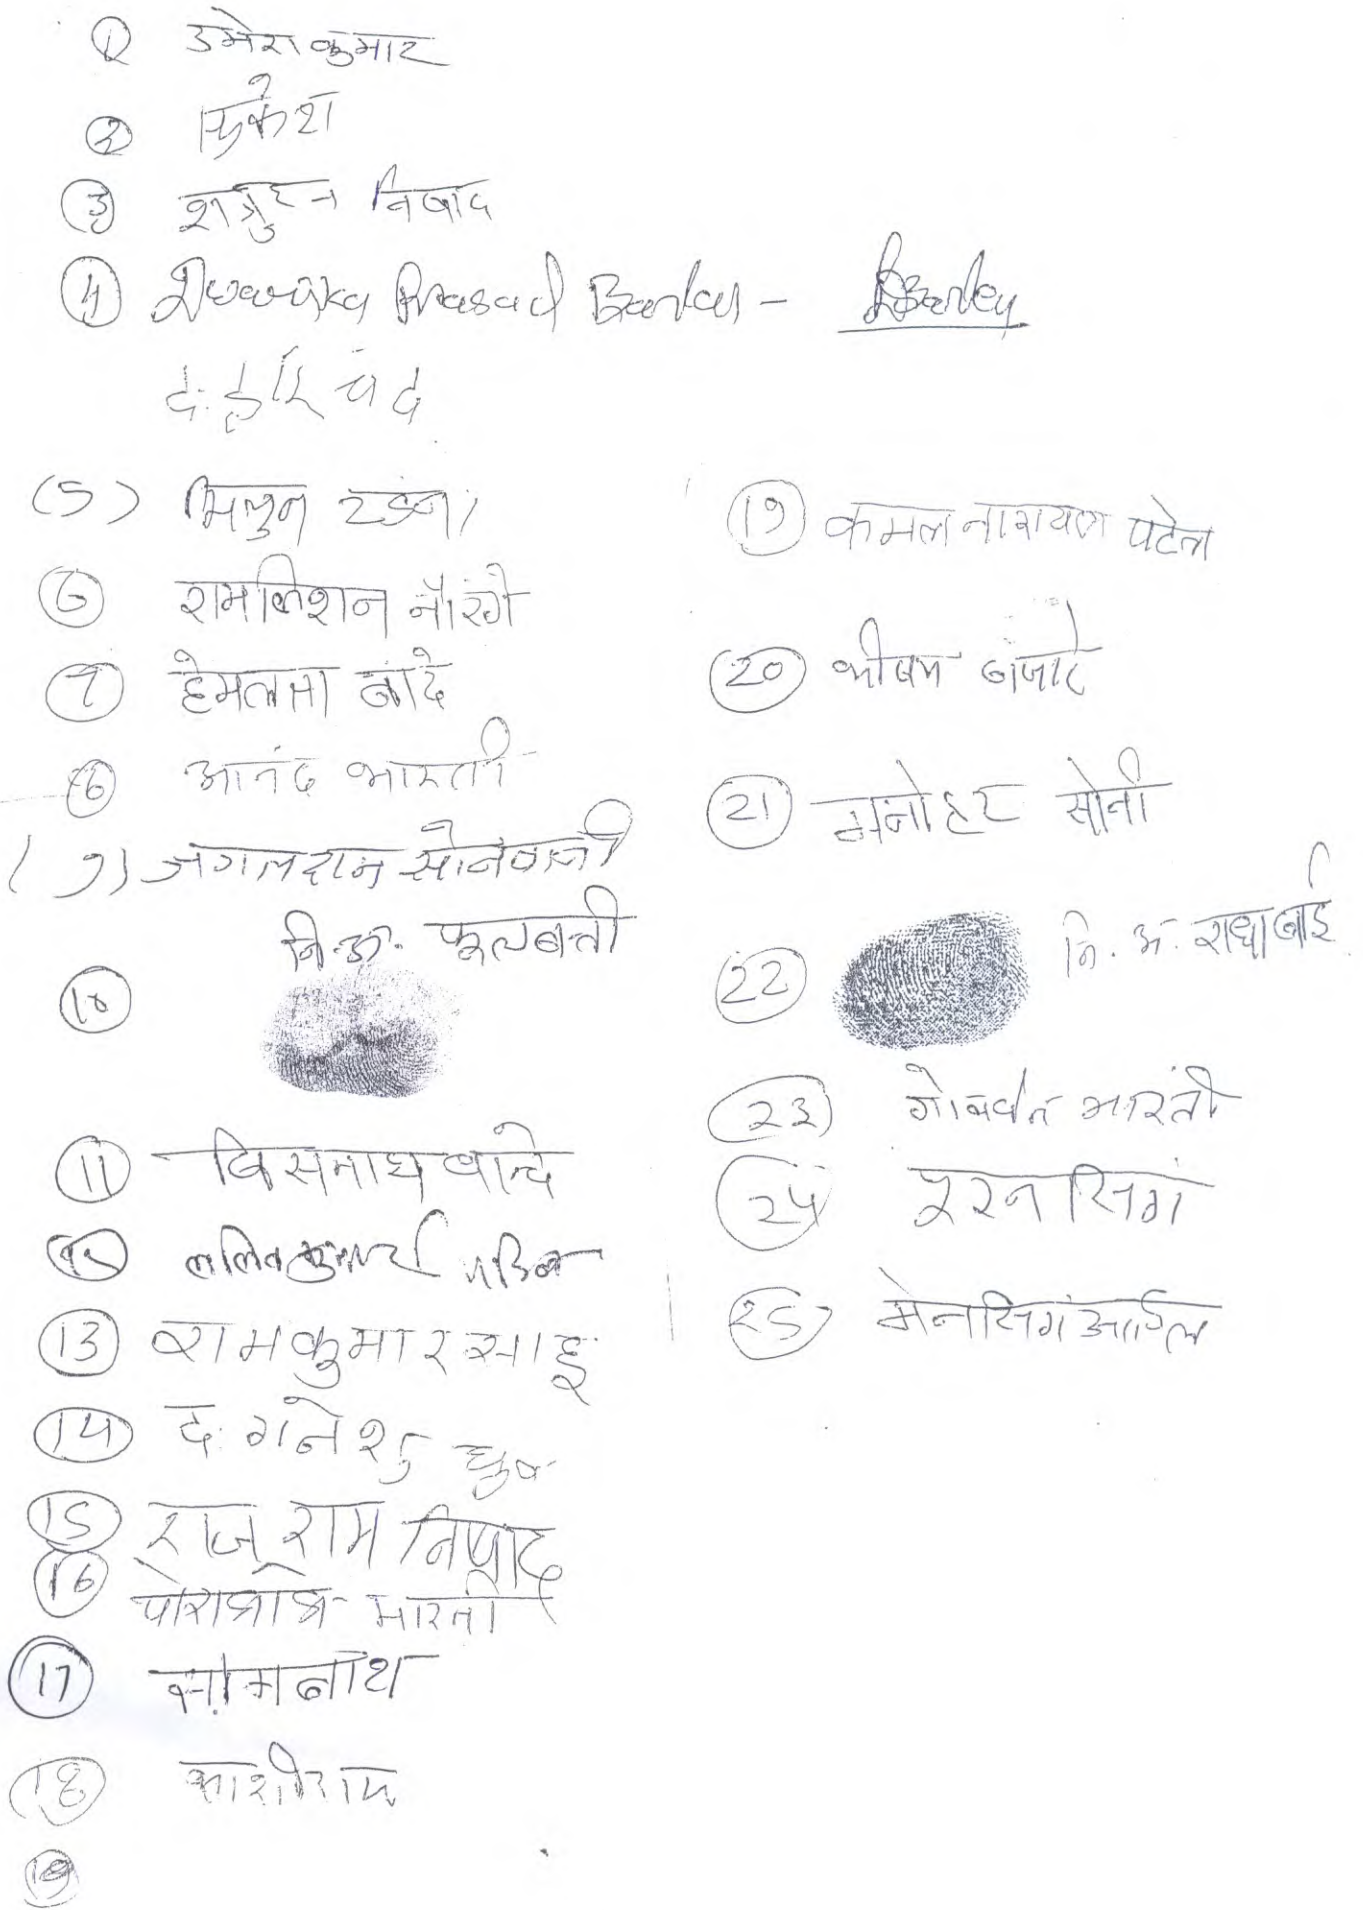 ① उमेश कुमार
② मुकेश
③ शत्रुहन निषाद
④ Dwarika Prasad Barley -
द. हरि चंद
(5) मिथुन
⑥ रामकिशन नौरंगे
⑦ हेमलता बांदे
⑧ आनंद भारती
(9) सोनवानी
नि.अं. फूलबत्ती
⑩
⑪ विसनाथ बान्दे
⑫ ललित कुमार
⑬ रामकुमार साहू
⑭ द. गनेशु ध्रुव
⑮ राजूराम निषाद
⑯ भारती
⑰ सोमनाथ
⑱ काशीराम
⑲
⑲ कमलनारायण पटेल
⑳ भीषम बंजारे
㉑ मनोहर सोनी
㉒ नि. अं. राधाबाई
㉓ गोवर्धन भारती
㉔ पूरन सिंग
㉕